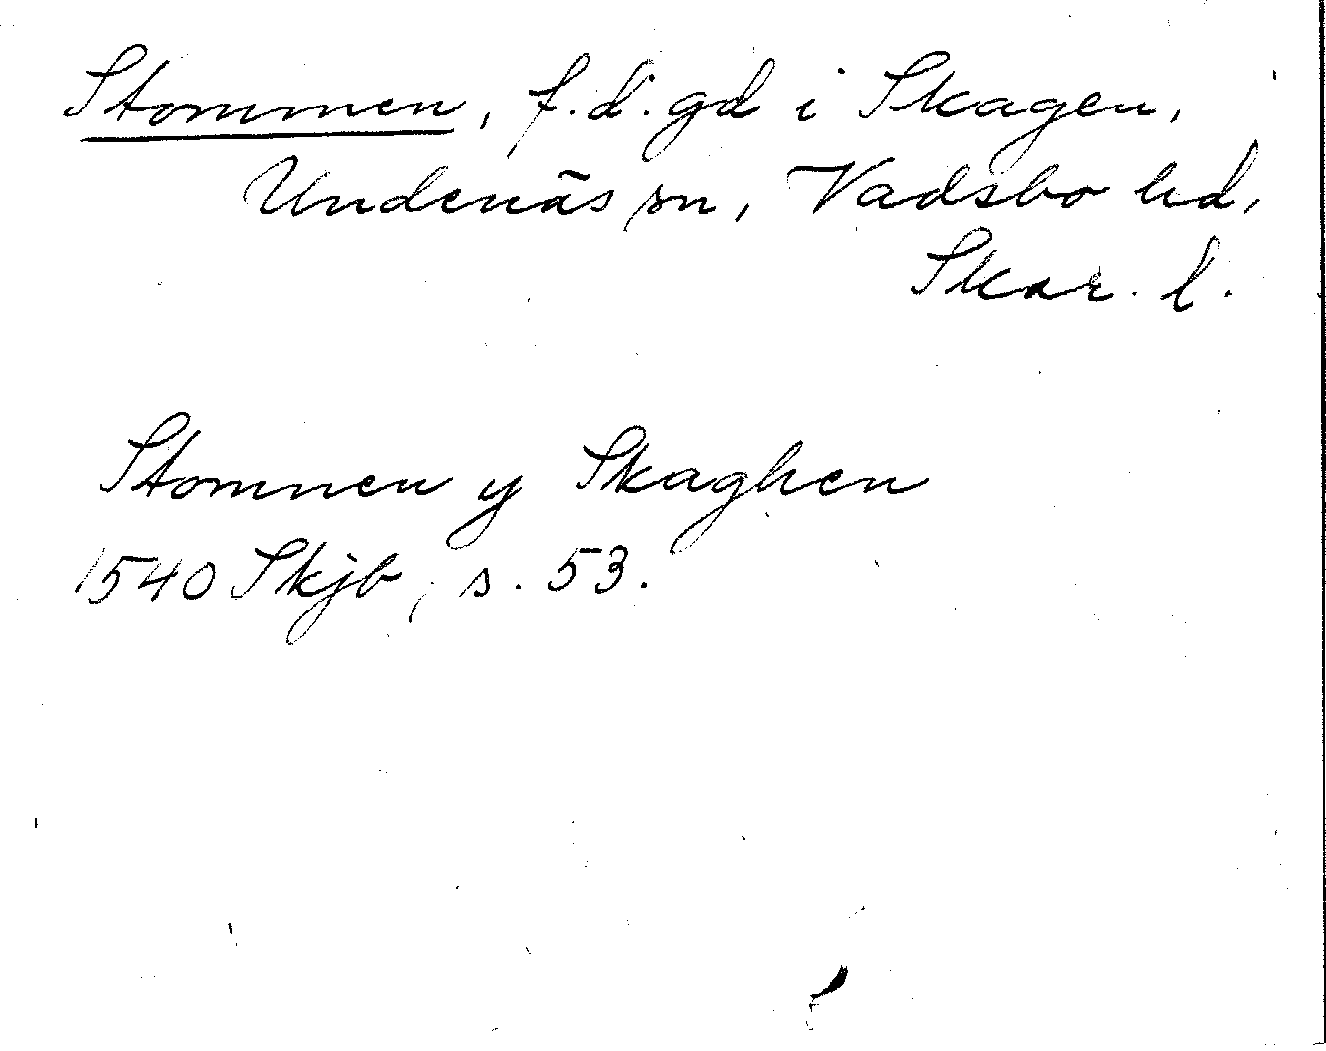 Stommen, f.d. gd i Skagen,
Undenäs sn, Vadsbo hd,
Skar. l.
Stomnen y Skaghen
1540 Skjb, s. 53.